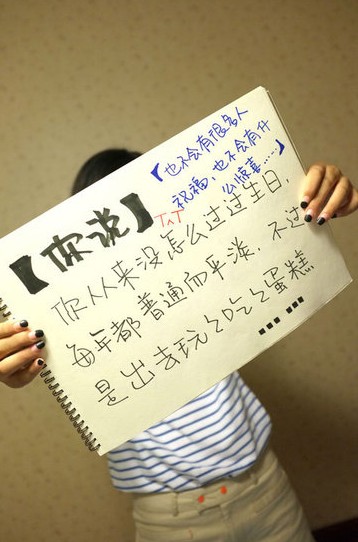 【你说】
『也不会有很多人
祝福,也不会有什
么惊喜……』
TAT
你从来没怎么过过生日,
每年都普通而平淡.不过
是出去玩玩吃吃蛋糕
……